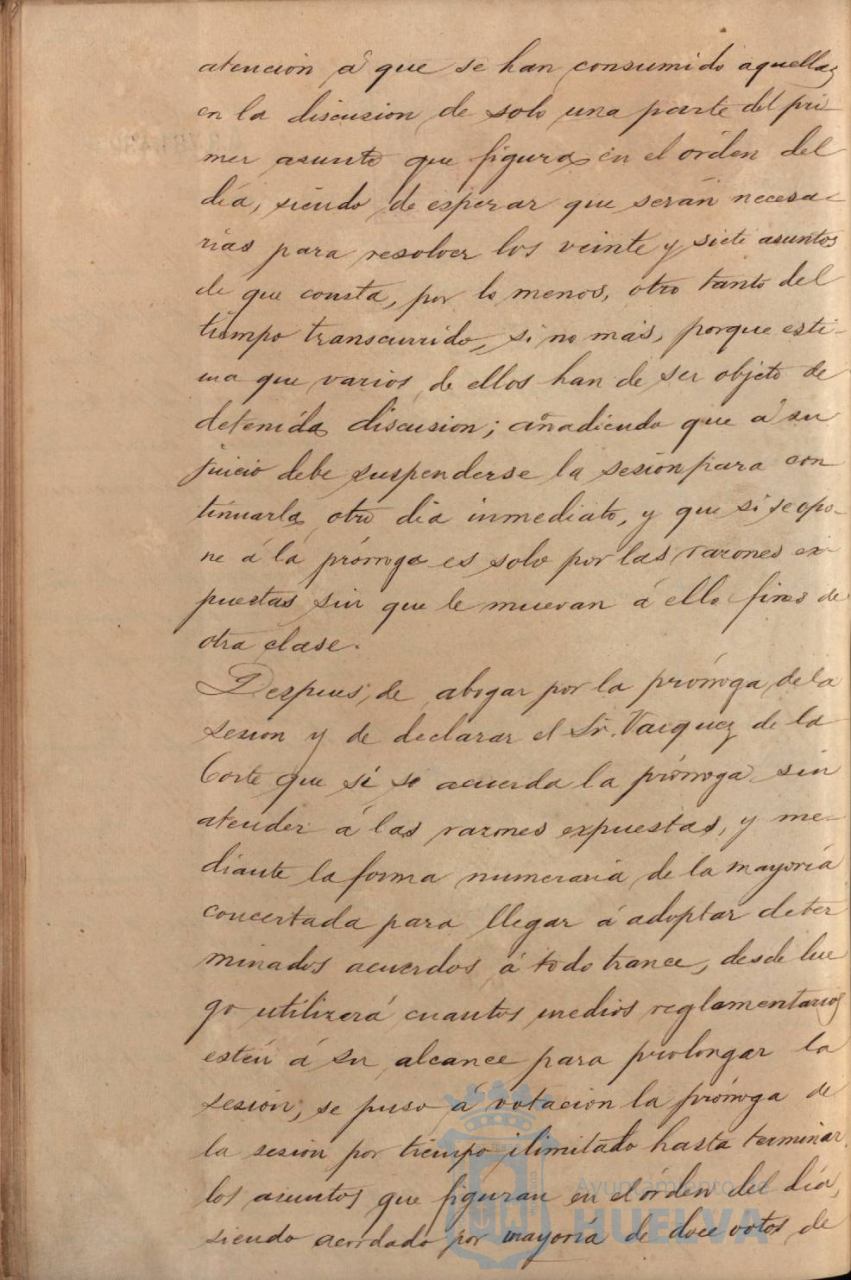 atencion á que se han consumido aquellas
en la discusion de solo una parte del pri
mer asunto que figura en el órden del
día, siendo de esperar que serán necesa-
rias para resolver los veinte y siete asuntos
de que consta, por lo menos, otro tanto del
tiempo transcurrido, si no mas, porque esti-
ma que varios de ellos han de ser objeto de
detenida discusion; añadiendo que á su
juicio debe suspenderse la sesión para con
tinuarla otro dia inmediato, y que si se opo-
ne á la prórroga es solo por las razones ex-
puestas sin que le muevan á ello fines de
otra clase.
Despues de abogar por la prórroga de la
sesion y de declarar el Sr. Vazquez de la
Corte que si se acuerda la prórroga sin
atender á las razones expuestas, y me-
diante la forma numeraria de la mayoría
concertada para llegar á adoptar deter
minados acuerdos á todo trance, desde lue
go utilizará cuantos medios reglamentarios
estén á su alcance para prolongar la
sesión, se puso á votacion la prórroga de
la sesión por tiempo ilimitado hasta terminar
los asuntos que figuran en el órden del día,
siendo acordado por mayoría de doce votos de
Ayuntamiento de
HUELVA